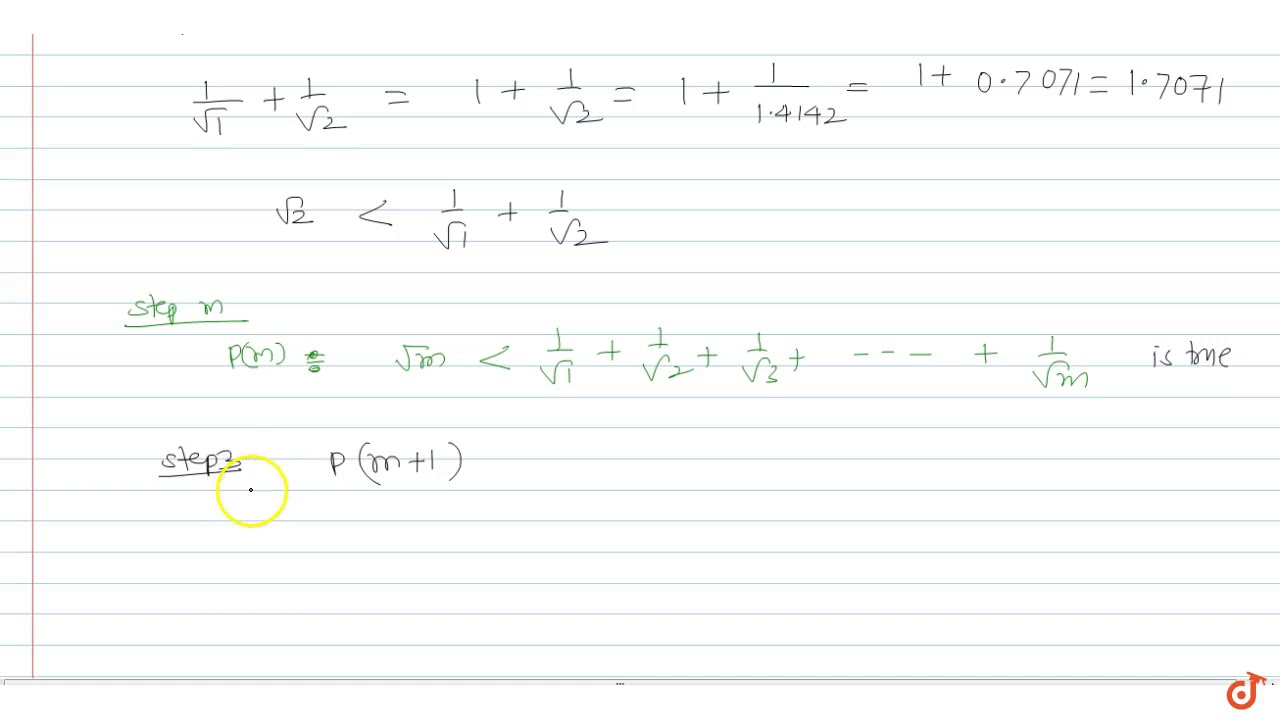 1/√1 + 1/√2 = 1 + 1/√2 = 1 + 1/1.4142 = 1 + 0.7071 = 1.7071
√2 < 1/√1 + 1/√2
Step m
P(m) : √m < 1/√1 + 1/√2 + 1/√3 + --- + 1/√m is true
Step 3 P(m+1)